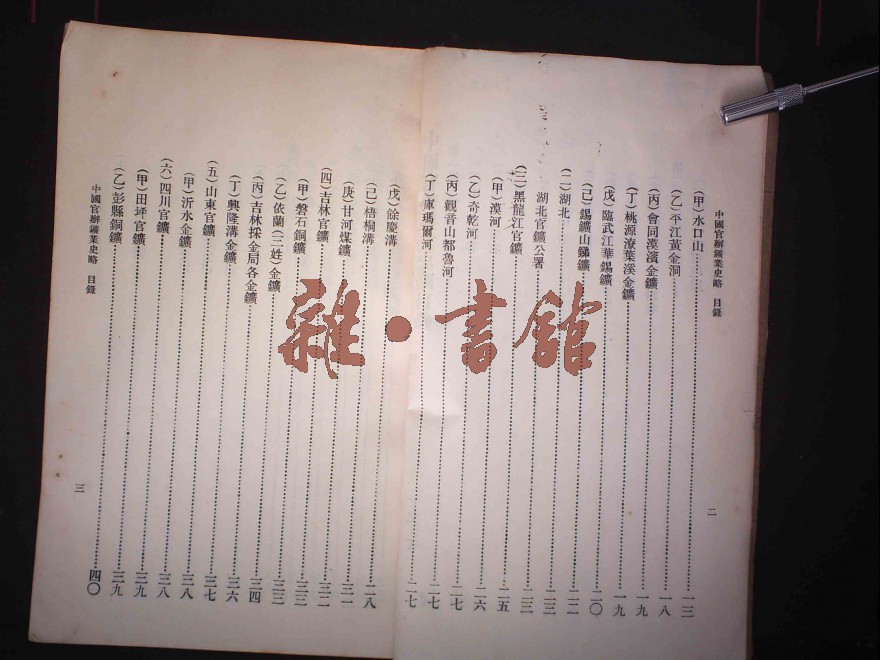 中國官辦鑛業史略 目錄
二
(甲)水口山……一三
(乙)平江黃金洞……一八
(丙)會同漠濱金鑛……一九
(丁)桃源潦葉溪金鑛……一九
(戊)臨武江華錫鑛……二〇
(己)錫鑛山銻鑛……二二
(二)湖北……二三
湖北官鑛公署……二三
(三)黑龍江官鑛……二五
(甲)漠河……二六
(乙)奇乾河……二七
(丙)觀音山都魯河……二七
(丁)庫瑪爾河……二七
(戊)餘慶溝……二八
(己)梧桐溝……三一
(庚)甘河煤鑛……三二
(四)吉林官鑛……三三
(甲)磐石銅鑛……三三
(乙)依蘭(三姓)金鑛……三四
(丙)吉林採金局各金鑛……三六
(丁)興隆溝金鑛……三七
(五)山東官鑛……三八
(甲)沂水金鑛……三八
(六)四川官鑛……三九
(甲)田坪官鑛……三九
(乙)彭縣銅鑛……四〇
中國官辦鑛業史略 目錄
三
雜·書館